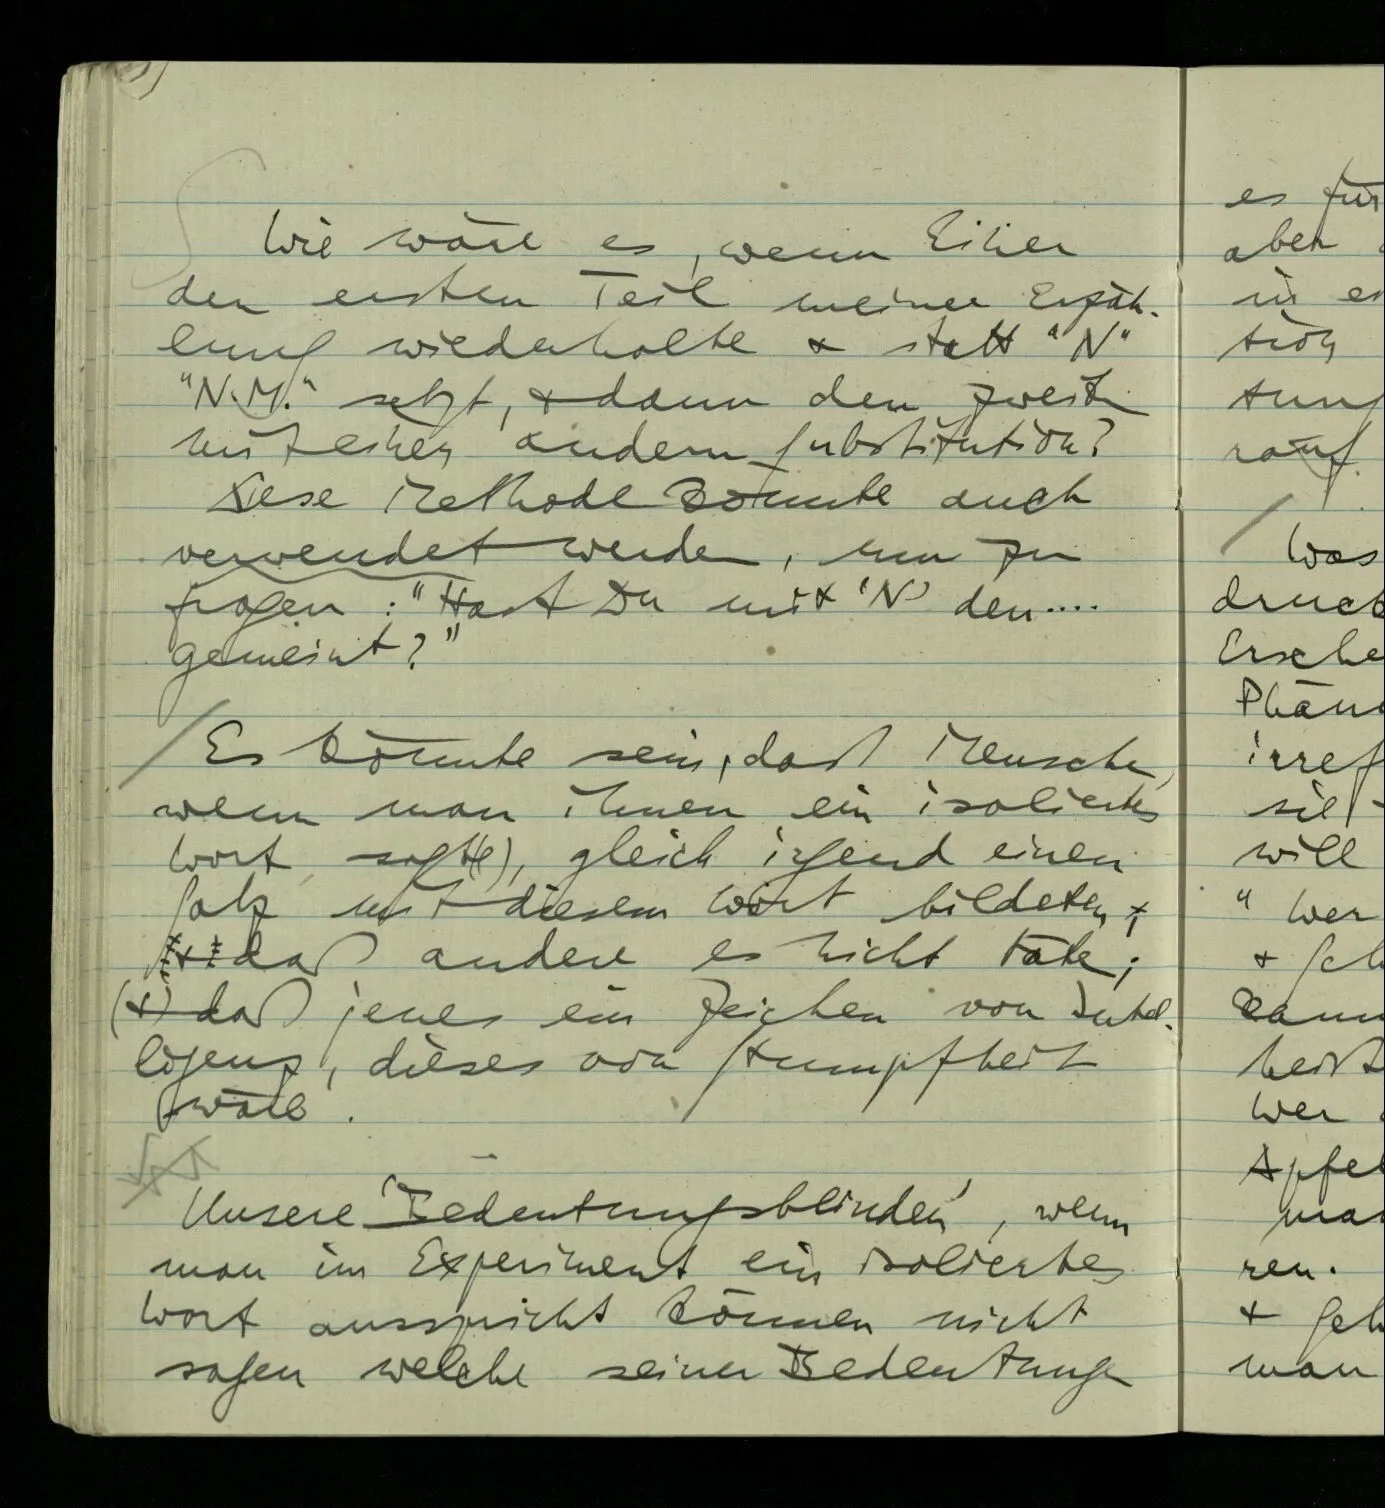 Wie wäre es, wenn Einer
den ersten Teil meiner Erzäh-
lung wiederholte & statt "N"
"N.M." setzt, & dann den zweiten
mit einer andern Substitution?
Diese Methode könnte auch
verwendet werden, um zu
fragen: "Hast Du mit 'N' den....
gemeint?"
Es könnte sein, daß Menschen,
wenn man ihnen ein isoliertes
Wort sagt(e), gleich irgend einen
Satz mit diesem Wort bildeten,
& daß andere es nicht täten;
(&) daß jenes ein Zeichen von Intel-
ligenz, dieses von Stumpfheit
wäre.
Unsere 'Bedeutungsblinden', wenn
man im Experiment ein isoliertes
Wort ausspricht können nicht
sagen welche seiner Bedeutungen
es für
aber
in
tion
tung
rauf.
Was
druck
Ersche
Phäno
irref
sie
will
" Wer
& geh
kann
heißt
Wer
Apfel
man
ren.
& geh
man